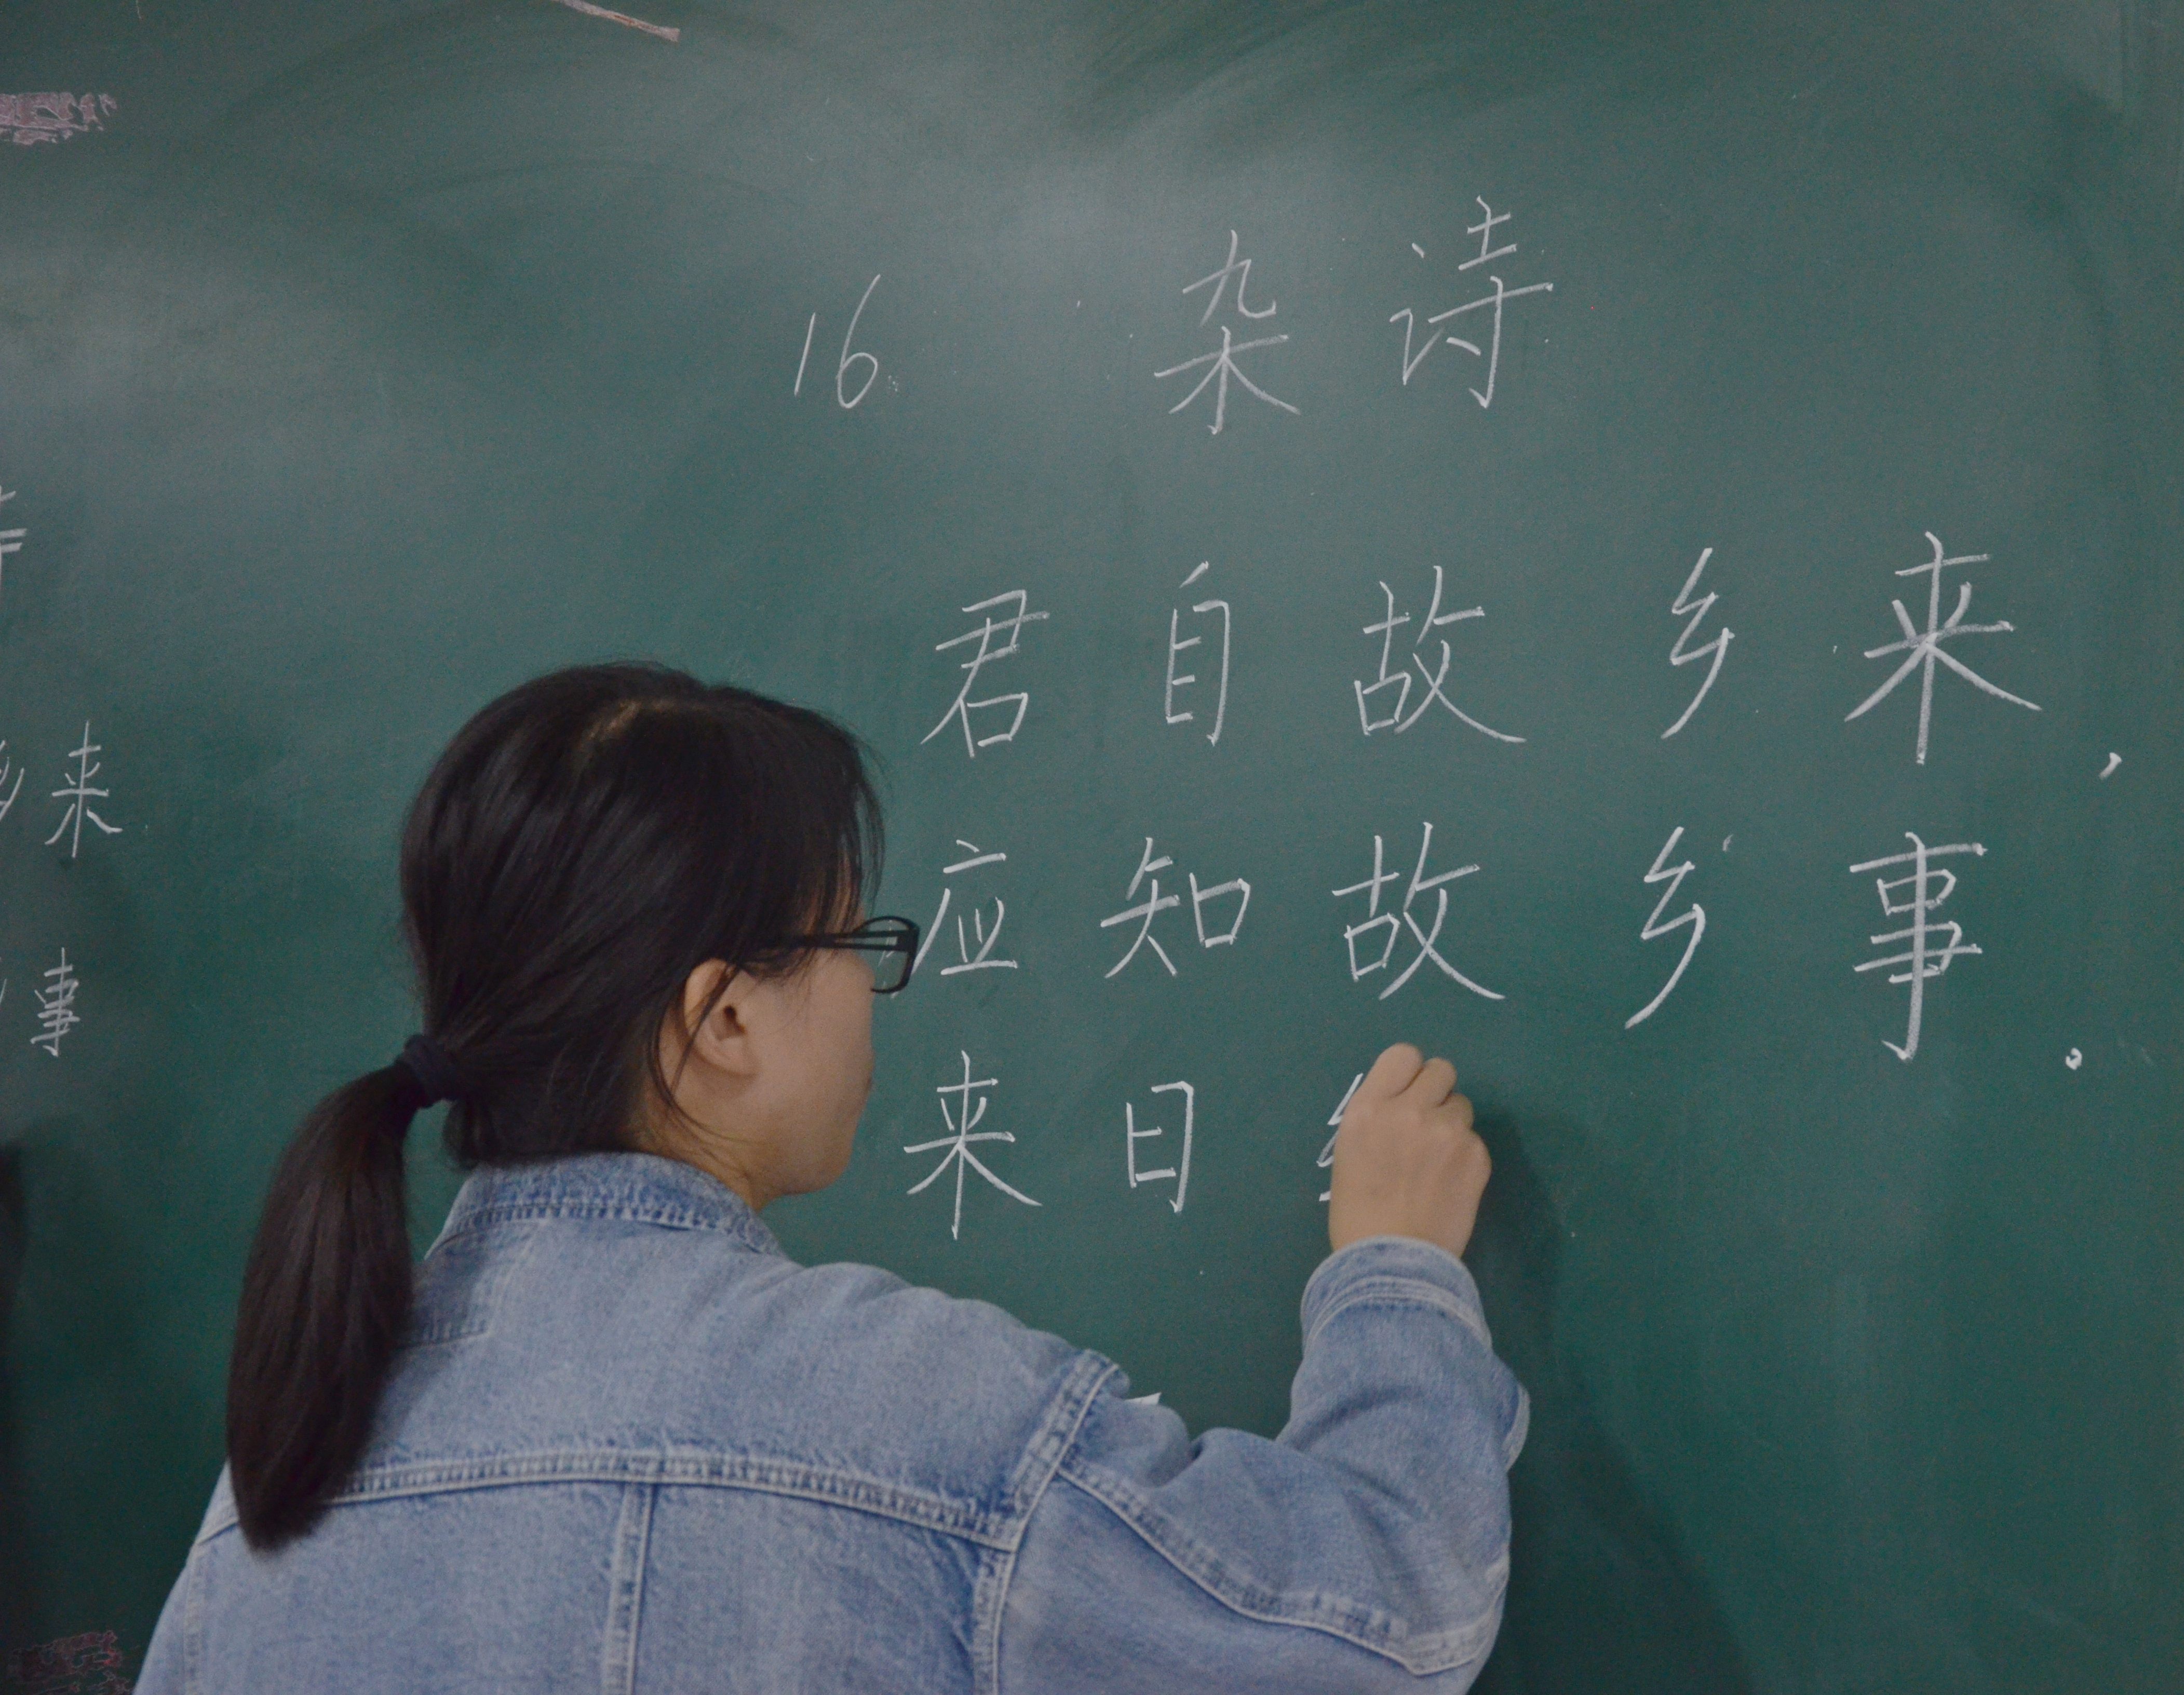 16 杂诗
君自故乡来，
应知故乡事。
来日
来
事